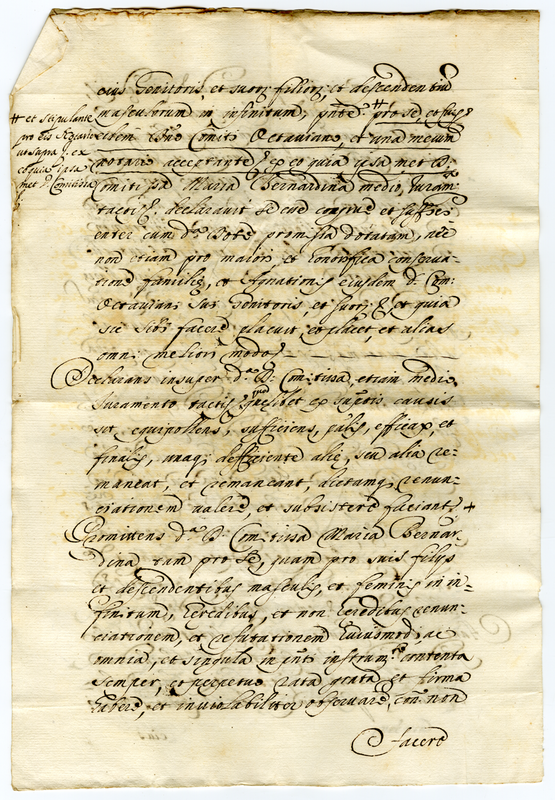 eius Genitoris, et suor: filior: et descendentium
masculorum in infinitum, pnte # pro se, et suis
eisdem Dno Comite Octaviano, et una mecum
notario acceptante / ex eo quia ipsa, met D:
Comitissa Maria Bernardina medio Juram:
tactis declaravit se
enter cum d: Dote promissa dotatam, nec
non etiam pro maiori et honorifica conserva-
tione familie, et Agnationis eiusdem d: Com:
Octaviani sui Genitoris, et suor: &, et quia
sic sibi facere placuit, et placet, et alias
omni meliori modo
Declarans insuper d: D: Comitissa, etiam medio
Juramento tactis quelibet ex suptis causis
sit equipollens, sufficiens, efficax, et
finalis, unaq; defficiente alie, seu alia re-
maneat, et remaneant, dictamq; renun-
ciationem valere, et subsistere faciant +
Promittens d: D: Comitissa Maria Bernar-
dina tam pro se, quam pro suis filijs
et descendentibus masculis, et feminis in in-
finitum, heredibus, et non heredibus renun-
ciationem, et refutationem huiusmodi, ac
omnia, et singula in pnti instrum: contenta
semper, et perpetuo rata grata et firma
habere, et inviolabiliter observare, non
facere
# et stipulante
pro dis
ut supra / ex
eo quia ipsa
met D: Comitissa